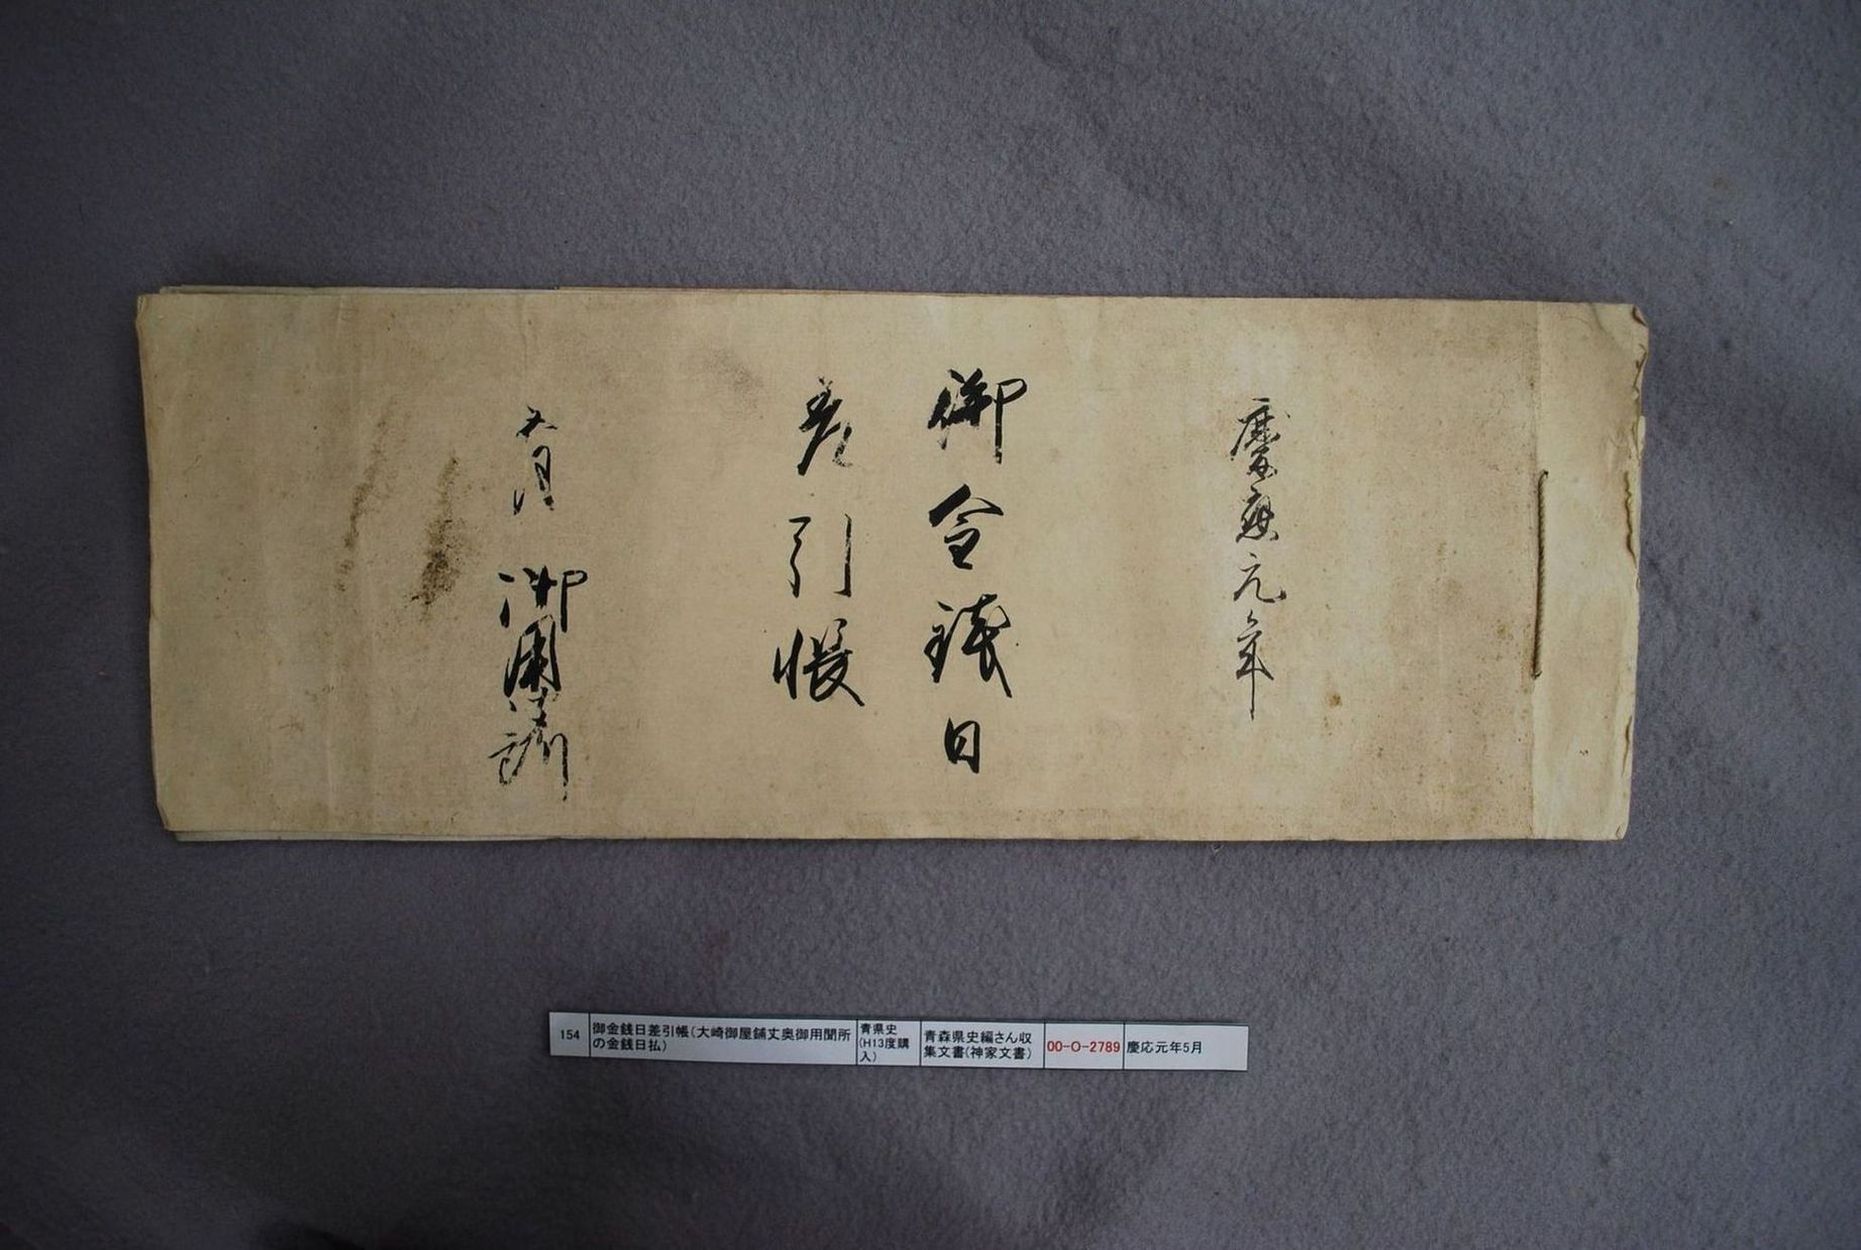 慶應元年
御金銭日
差引帳
五月 御用諸
154
御金銭日差引帳(大崎御屋鋪丈奥御用聞所
の金銭日払)
青県史
(H13度購
入)
青森県史編さん収
集文書(神家文書)
00-O-2789
慶応元年5月